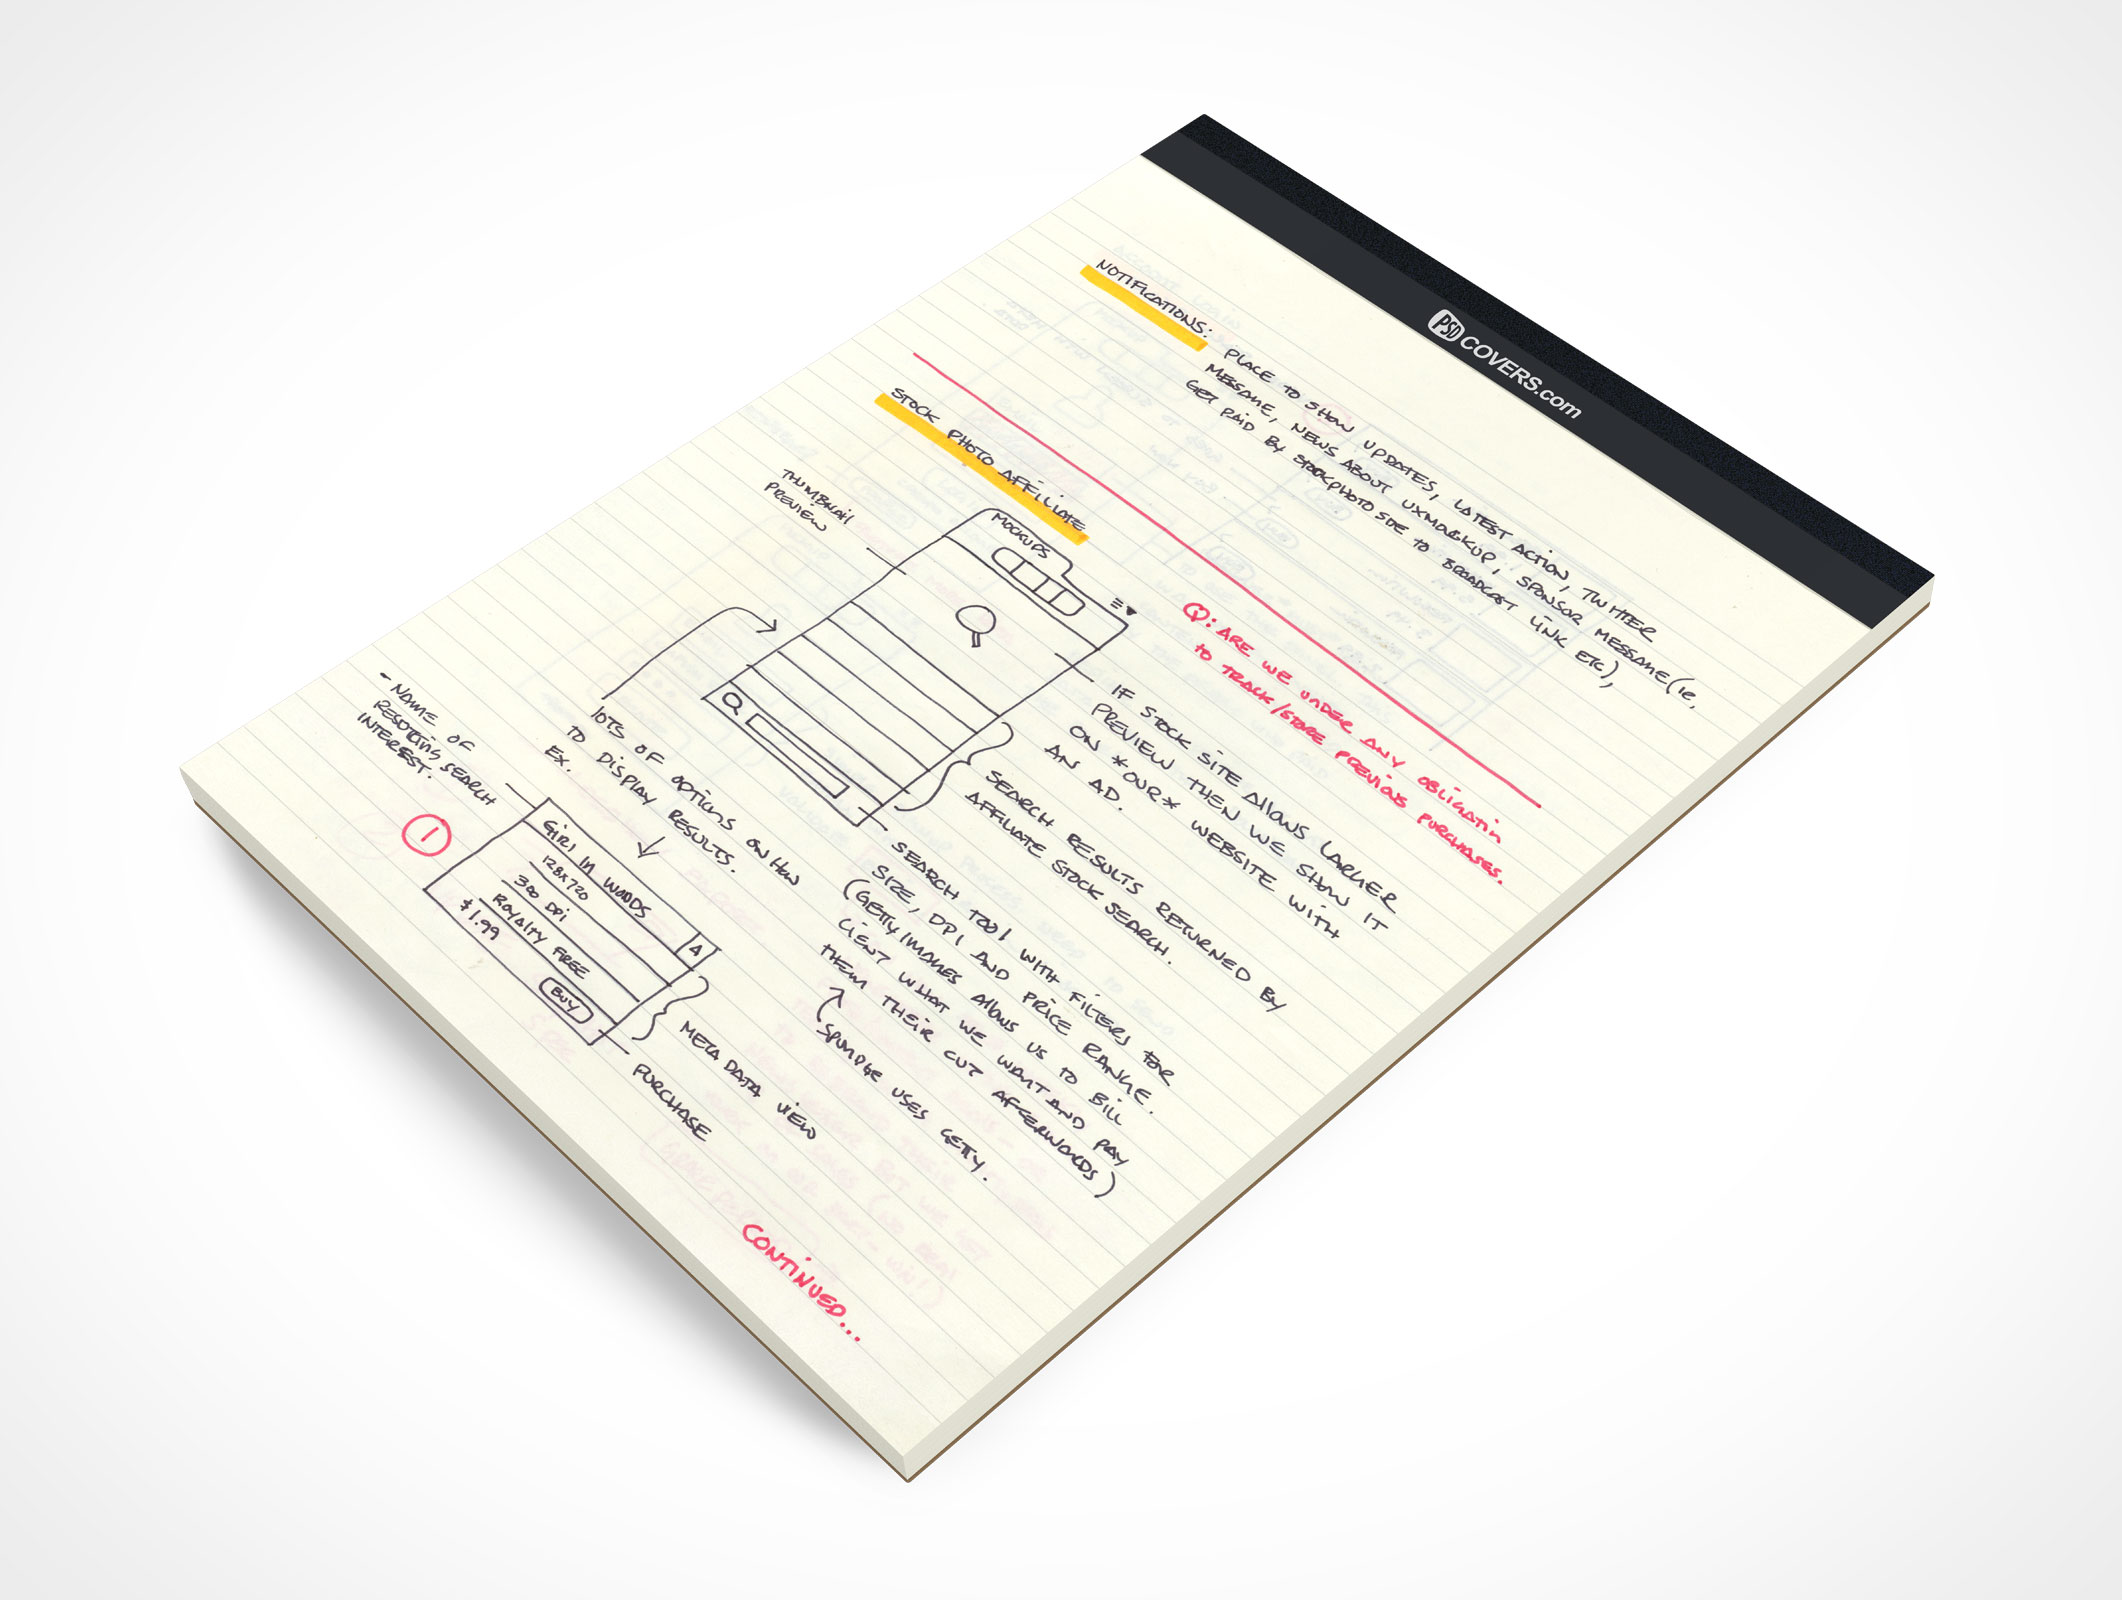 PSD COVERS.com
NOTIFICATIONS:
PLACE TO SHOW UPDATES, LATEST ACTION, TWITTER
MESSAGE, NEWS ABOUT UXMARKUP, SPONSOR MESSAGE (IE,
GET PAID BY STOCKPHOTO SITE TO BROADCAST LINK ETC),
STOCK PHOTO AFFILIATE
Q: ARE WE UNDER ANY OBLIGATION
TO TRACK/STORE PREVIOUS PURCHASES.
THUMBNAIL
PREVIEW
MOCKUPS
IF STOCK SITE ALLOWS LARGER
PREVIEW THEN WE SHOW IT
ON *OUR* WEBSITE WITH
AN AD.
SEARCH RESULTS RETURNED BY
AFFILIATE STOCK SEARCH.
SEARCH TOOL WITH FILTERS FOR
SIZE, DPI AND PRICE RANGE.
(GETTY IMAGES ALLOWS US TO BILL
CLIENT WHAT WE WANT AND PAY
THEM THEIR CUT AFTERWORDS)
SPUNDGE USES GETTY.
LOTS OF OPTIONS ON HOW
TO DISPLAY RESULTS.
EX.
- NAME OF
RESULTING SEARCH
INTEREST.
1
GIRL IN WOODS
128x720
300 DPI
ROYALTY FREE
$1.99
BUY
META DATA VIEW
PURCHASE
CONTINUED...